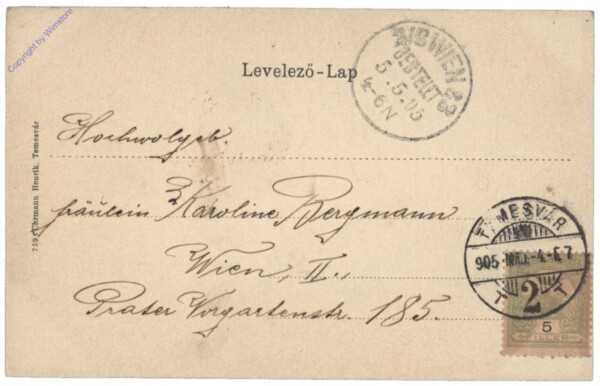 Copyright by Wimstore
Levelező-Lap
WIEN
BESTELLT
5.5.05
4-6N
Hochwolgeb.
Fräulein Karoline Bergmann
Wien, II.,
Prater Vorgartenstr. 185.
TEMESVÁR
905 MÁJ. -4.-E 7
2
T T
5
FILLÉR
759 Uhrmann Henrik, Temesvár